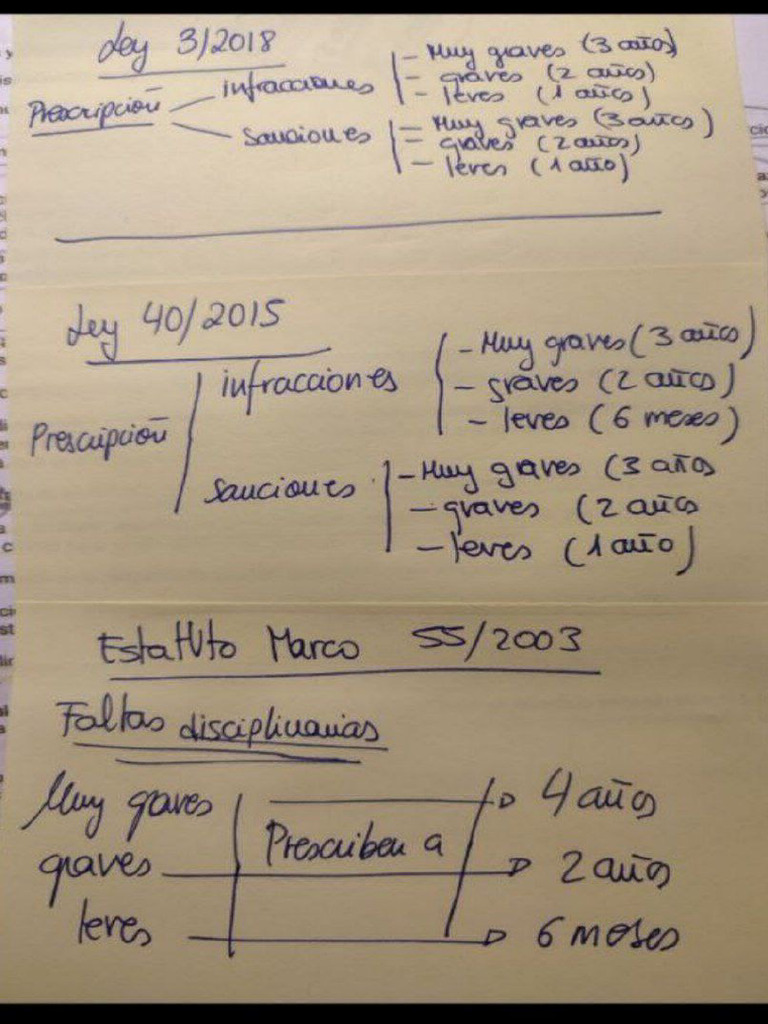 Ley 3/2018
Prescripción
infracciones
- Muy graves (3 años)
- graves (2 años)
- leves (1 año)
sanciones
- Muy graves (3 años)
- graves (2 años)
- leves (1 año)
Ley 40/2015
Prescripción
infracciones
- Muy graves (3 años)
- graves (2 años)
- leves (6 meses)
sanciones
- Muy graves (3 años
- graves (2 años
- leves (1 año)
Estatuto Marco 55/2003
Faltas disciplinarias
Muy graves
4 años
Prescriben a
graves
2 años
leves
6 meses